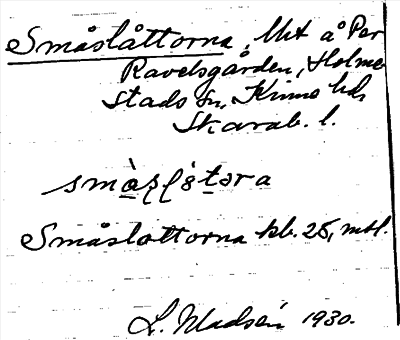 Småslåttorna, Mt å Per
Ravelsgården, Holme-
stads sn, Kinne hd,
Skarab. l.
småslåtəra
Småslottorna kb. 25, mtl.
L. Madsén 1930.